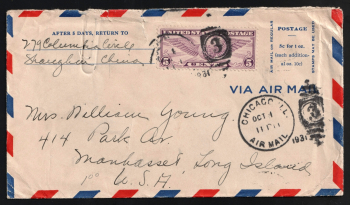 AFTER 5 DAYS, RETURN TO
279 Columbia Circle
Shanghai China
UNITED STATES POSTAGE
5 CENTS 5
1931
AIR MAIL OR REGULAR
POSTAGE
5c for 1 oz.
(each addition-
al oz. 10c)
STAMPS MAY BE USED
VIA AIR MAIL
CHICAGO, ILL.
OCT 1
1931
AIR MAIL
3
Mrs. William Young.
414 Park Av.
Manhasset, Long Island
U.S.A.